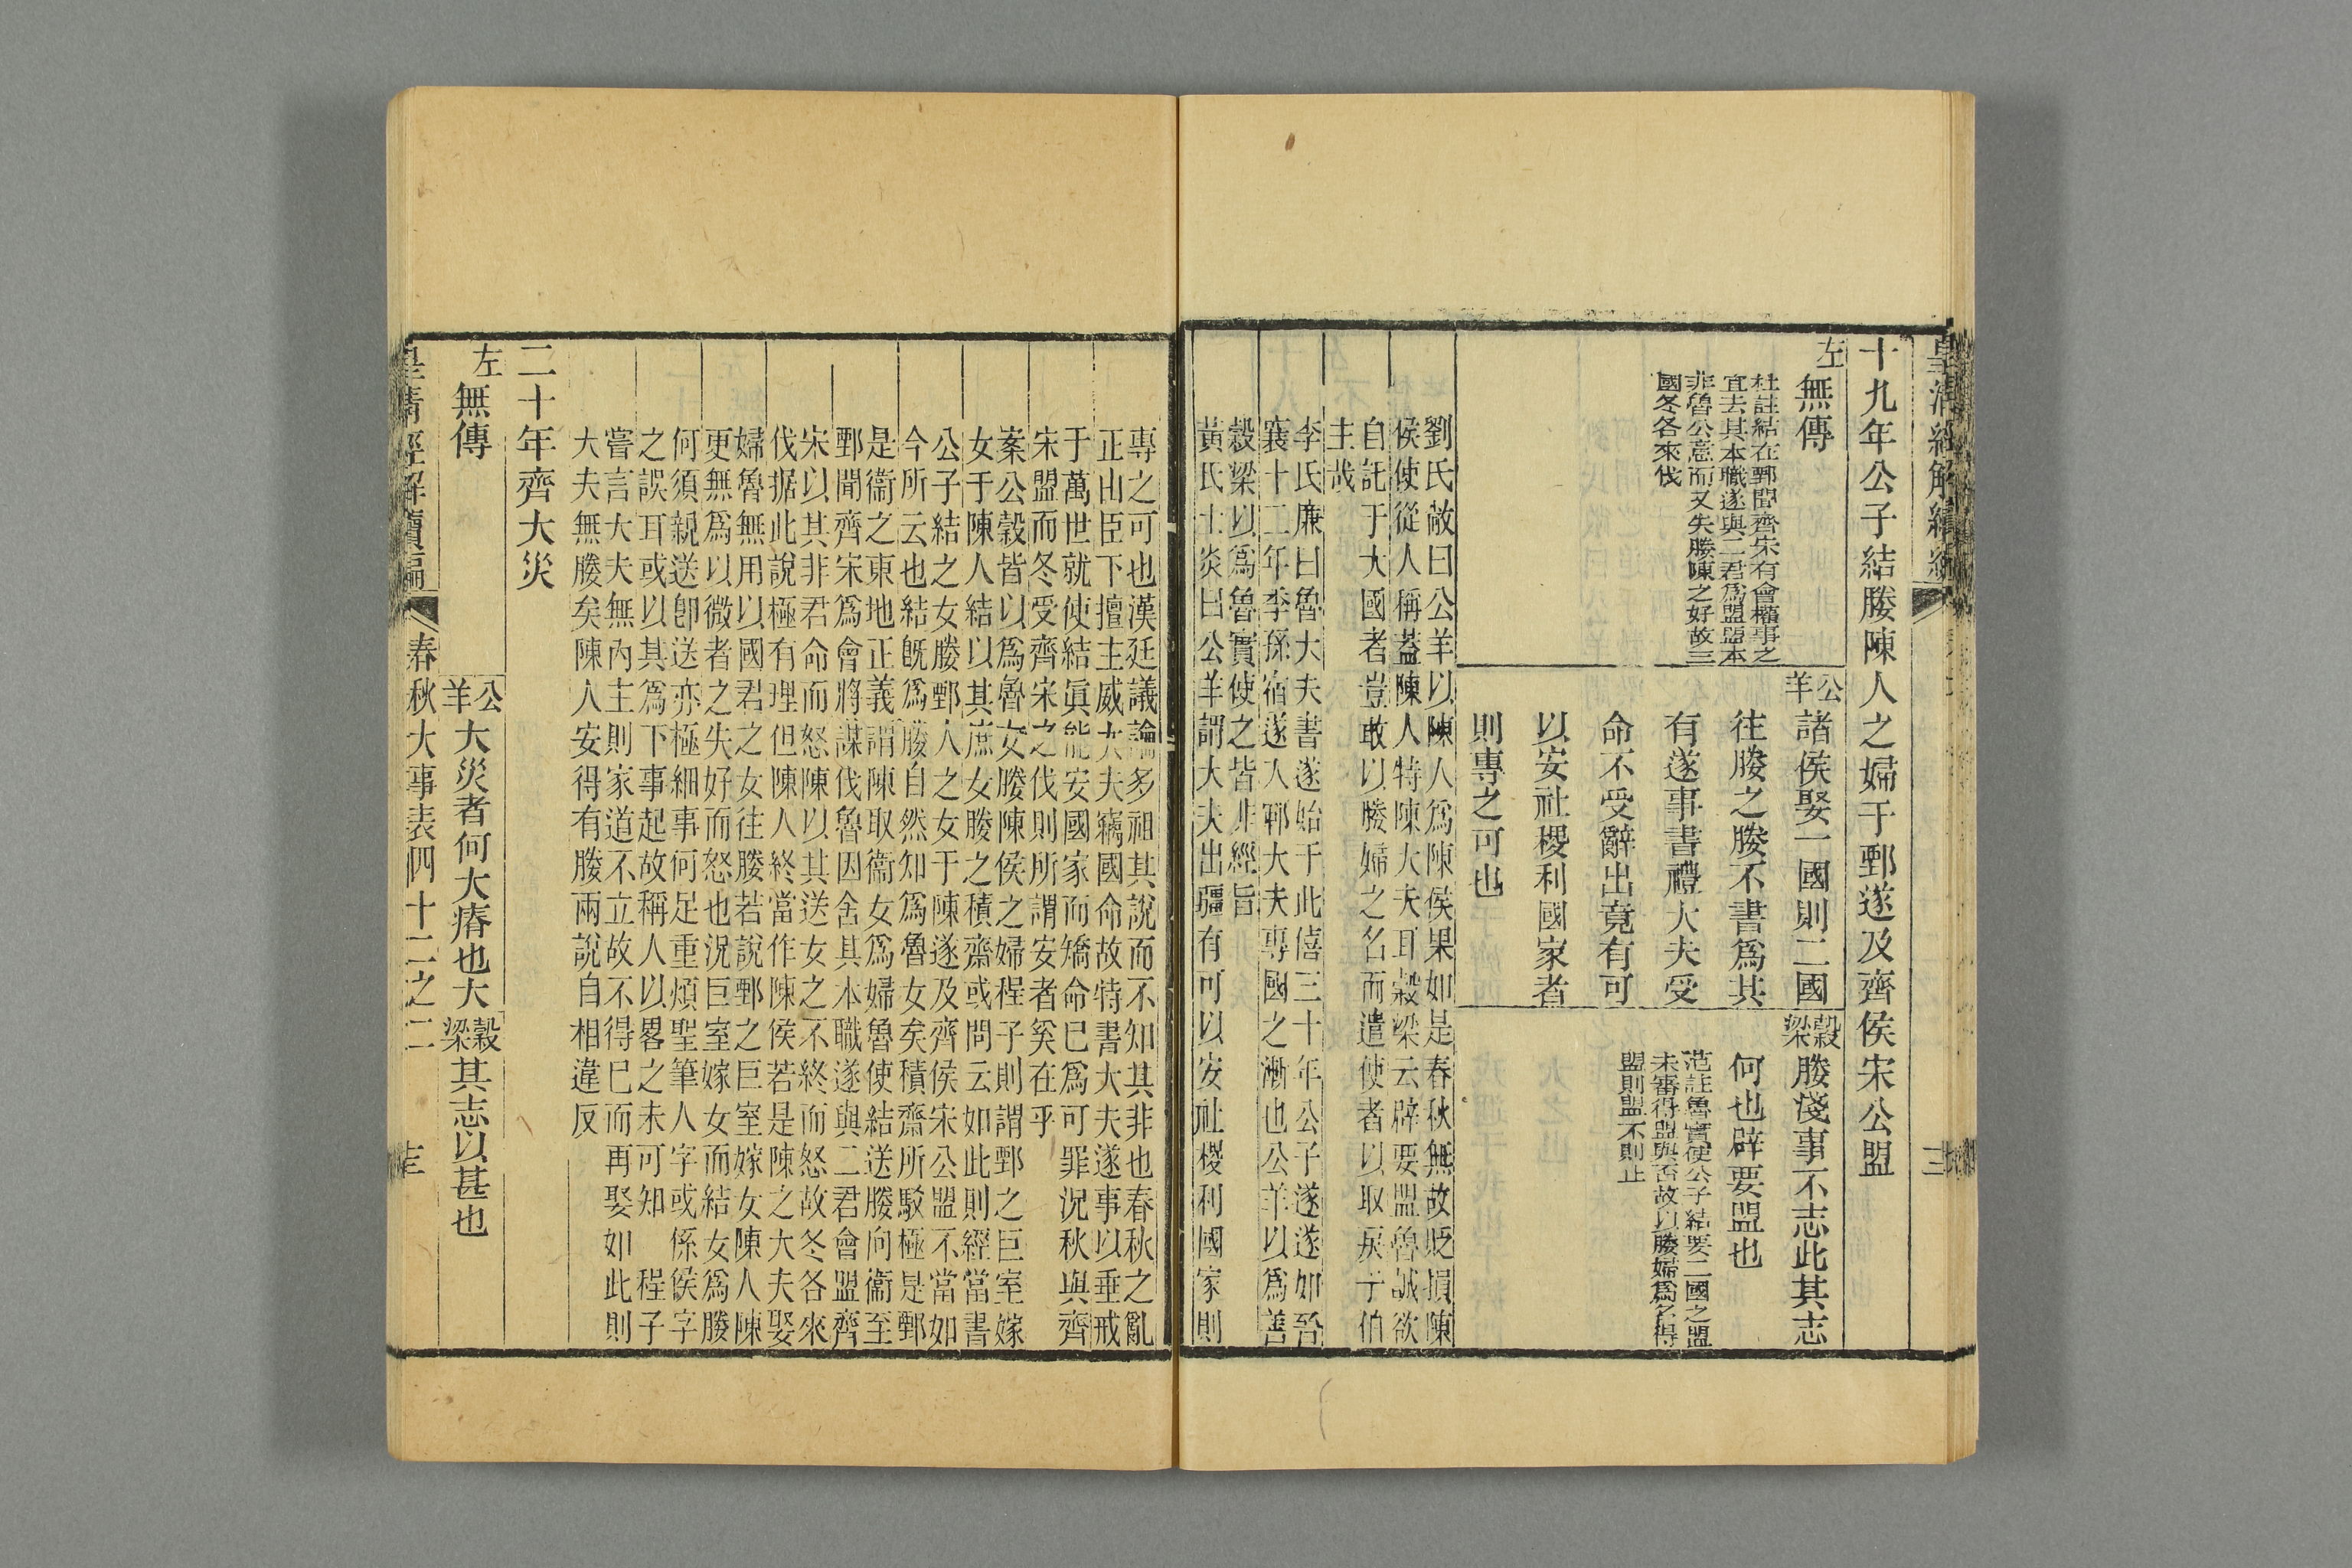 皇清經解續編
十九年公子結媵陳人之婦于鄄遂及齊侯宋公盟
左
無傳
杜註結在鄄聞齊宋有會權事之
宜去其本職遂與二君爲盟盟本
非魯公意而又失媵陳之好故三
國冬各來伐
公羊
諸侯娶一國則二國
往媵之媵不書爲其
有遂事書禮大夫受
命不受辭出竟有可
以安社稷利國家者
則專之可也
穀梁
媵淺事不志此其志
何也辟要盟也
范註魯實使公子結要二國之盟
未審得盟與否故以媵婦爲名得
盟則盟不則止
劉氏敞曰公羊以陳人爲陳侯果如是春秋無故貶損陳
侯使從人稱蓋陳人特陳大夫耳穀梁云辟要盟魯誠欲
自託于大國者豈敢以媵婦之名而遣使者以取戾于伯
主哉
李氏廉曰魯大夫書遂始于此僖三十年公子遂遂如晉
襄十二年季孫宿遂入鄆大夫專國之漸也公羊以爲善
穀梁以爲魯實使之皆非經旨
黃氏士炎曰公羊謂大夫出疆有可以安社稷利國家則
專之可也漢廷議論多祖其說而不知其非也春秋之亂
正由臣下擅主威大夫竊國命故特書大夫遂事以垂戒
于萬世就使結眞能安國家而矯命巳爲可罪況秋與齊
宋盟而冬受齊宋之伐則所謂安者奚在乎
案公穀皆以爲魯女媵陳侯之婦程子則謂鄄之巨室嫁
女于陳人結以其庶女媵之積齋或問云如此則經當書
公子結之女媵鄄人之女于陳遂及齊侯宋公盟不當如
今所云也結旣爲媵自然知爲魯女矣積齋所駁極是鄄
是衞之東地正義謂陳取衞女爲婦魯使結送媵向衞至
鄄聞齊宋爲會將謀伐魯因舍其本職遂與二君會盟齊
宋以其非君命而怒陳以其送女之不終而怒故冬各來
伐据此說極有理但陳人終當作陳侯若是陳之大夫娶
婦魯無用以國君之女往媵若說鄄之巨室嫁女陳人陳
更無爲以微者之失好而怒也況巨室嫁女而結女爲媵
何須親送卽送亦極細事何足重煩聖筆人字或係侯字
之誤耳或以其爲下事起故稱人以畧之未可知　程子
嘗言大夫無內主則家道不立故不得巳而再娶如此則
大夫無媵矣陳人安得有媵兩說自相違反
二十年齊大災
左
無傳
公羊
大災者何大瘠也大
穀梁
其志以甚也
皇清經解續編
春秋大事表四十二之二